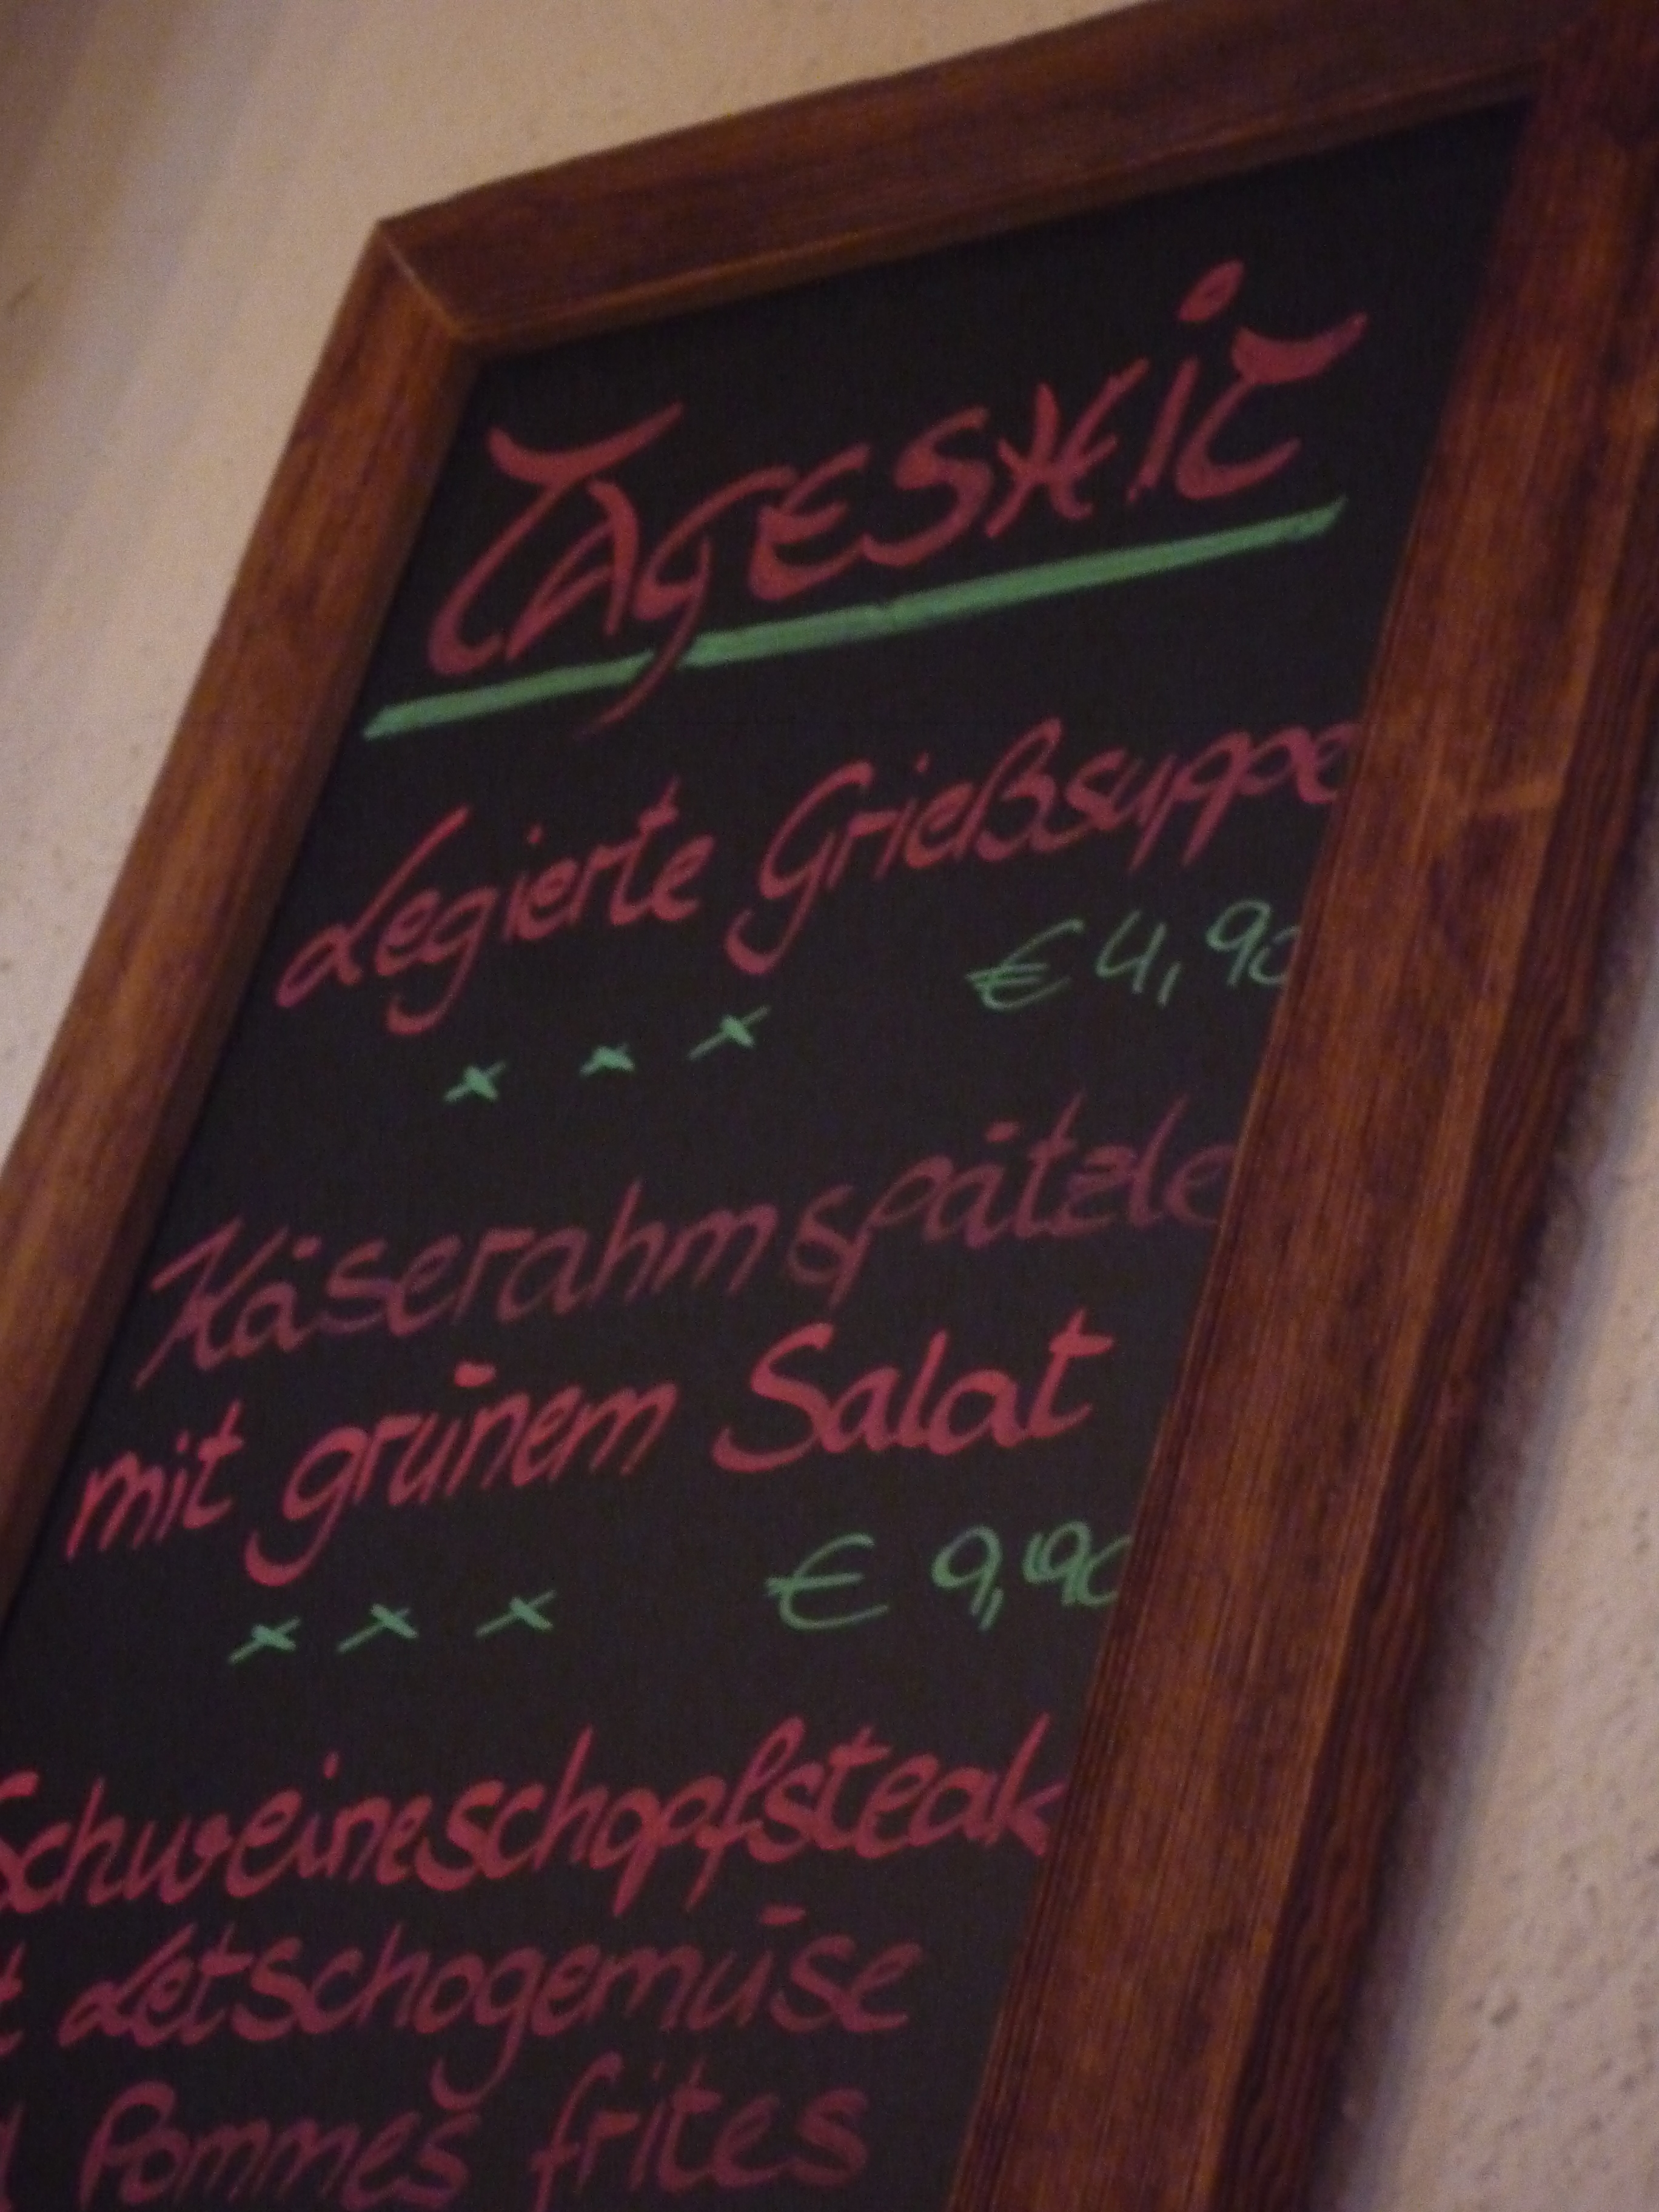 TAGESHIT
Legierte Grießsuppe
€ 4,90
x x x
Käserahmspätzle
mit grünem Salat
€ 9,90
x x x
Schweineschopfsteak
Letschogemüse
Pommes frites